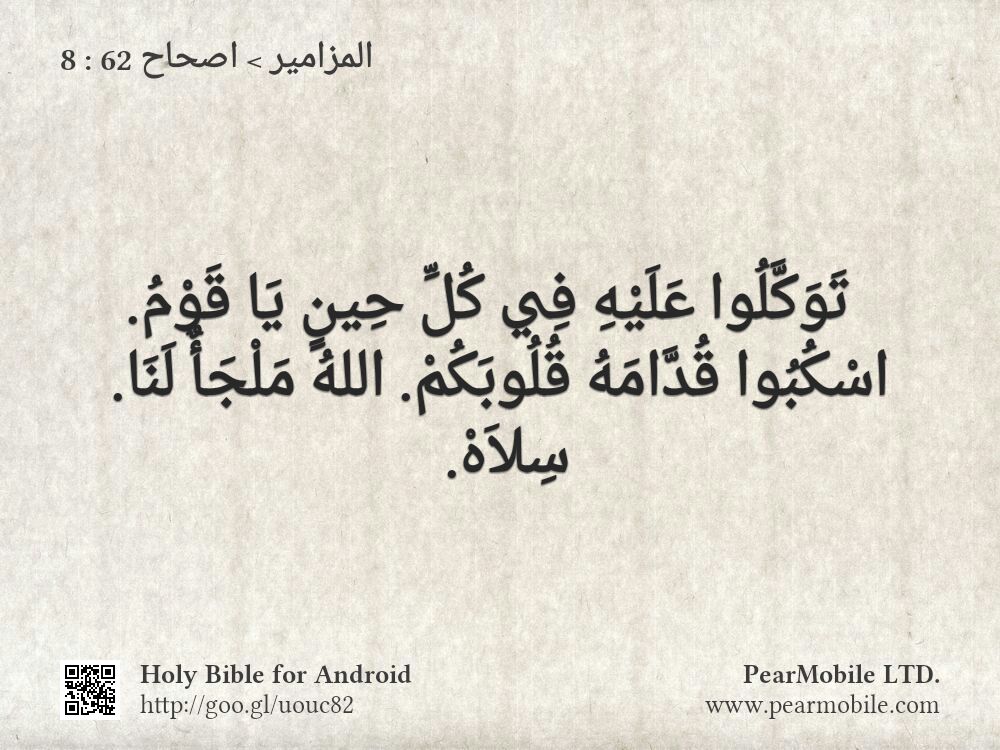 المزامير > اصحاح 62 : 8
تَوَكَّلُوا عَلَيْهِ فِي كُلِّ حِينٍ يَا قَوْمُ.
اسْكُبُوا قُدَّامَهُ قُلُوبَكُمْ. اللهُ مَلْجَأٌ لَنَا.
سِلاَهْ.
Holy Bible for Android
http://goo.gl/uouc82
PearMobile LTD.
www.pearmobile.com